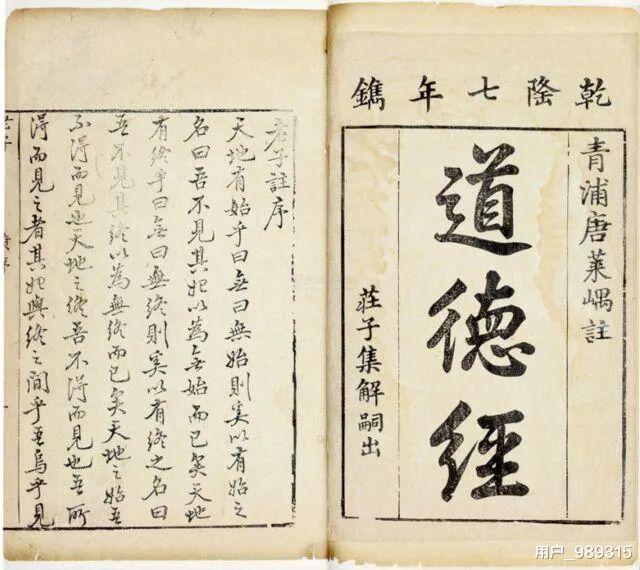 乾隆七年鐫
青浦唐萊嵎註
道德經
荘子集解嗣出
老子註序
天地有始乎曰无曰無始則奚以有始之
名曰吾不見其始以為无始而已矣天地
有終乎曰无曰無終則奚以有終之名曰
吾不見其終以為無終而已矣天地之始吾
不得而見也天地之終吾不得而見也吾所
得而見之者其始與終之間乎吾烏乎見
用户_989315